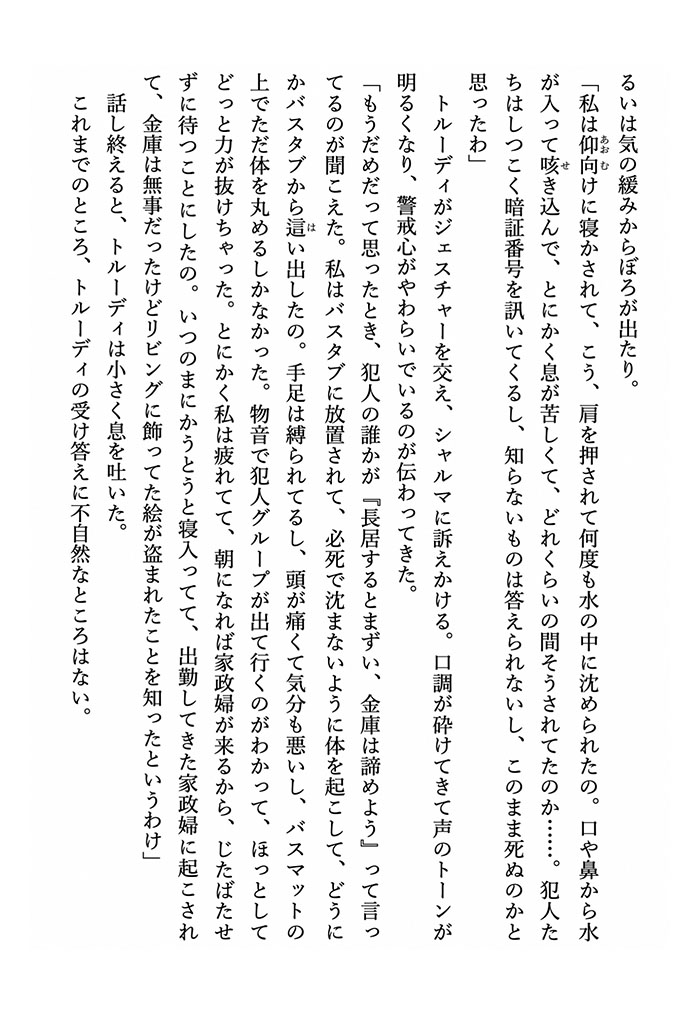 るいは気の緩みからぼろが出たり。
「私は仰向けに寝かされて、こう、肩を押されて何度も水の中に沈められたの。口や鼻から水
が入って咳き込んで、とにかく息が苦しくて、どれくらいの間そうされてたのか……。犯人た
ちはしつこく暗証番号を訊いてくるし、知らないものは答えられないし、このまま死ぬのかと
思ったわ」
　トルーディがジェスチャーを交え、シャルマに訴えかける。口調が砕けてきて声のトーンが
明るくなり、警戒心がやわらいでいるのが伝わってきた。
「もうだめだって思ったとき、犯人の誰かが『長居するとまずい、金庫は諦めよう』って言っ
てるのが聞こえた。私はバスタブに放置されて、必死で沈まないように体を起こして、どうに
かバスタブから這い出したの。手足は縛られてるし、頭が痛くて気分も悪いし、バスマットの
上でただ体を丸めるしかなかった。物音で犯人グループが出て行くのがわかって、ほっとして
どっと力が抜けちゃった。とにかく私は疲れてて、朝になれば家政婦が来るから、じたばたせ
ずに待つことにしたの。いつのまにかうとうと寝入ってて、出勤してきた家政婦に起こされ
て、金庫は無事だったけどリビングに飾ってた絵が盗まれたことを知ったというわけ」
　話し終えると、トルーディは小さく息を吐いた。
　これまでのところ、トルーディの受け答えに不自然なところはない。